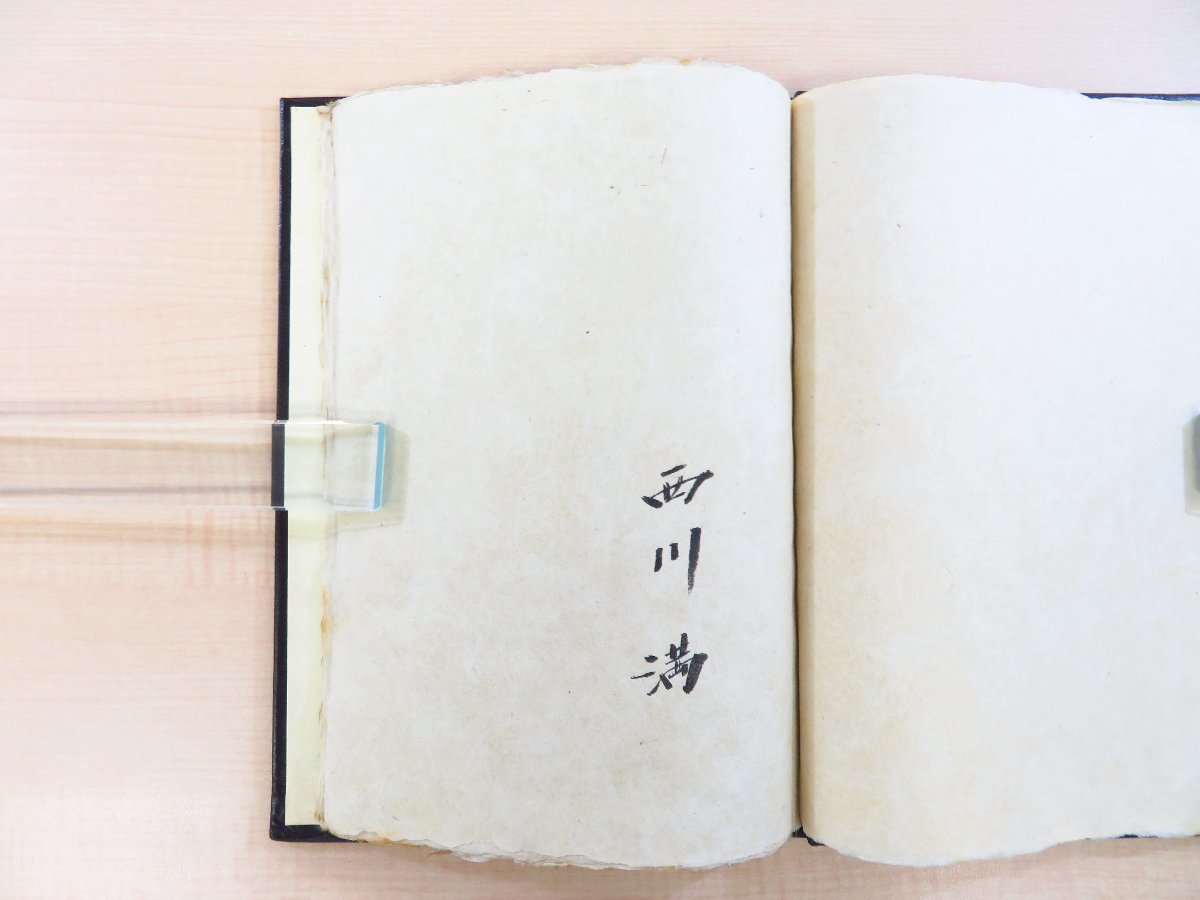 西川満